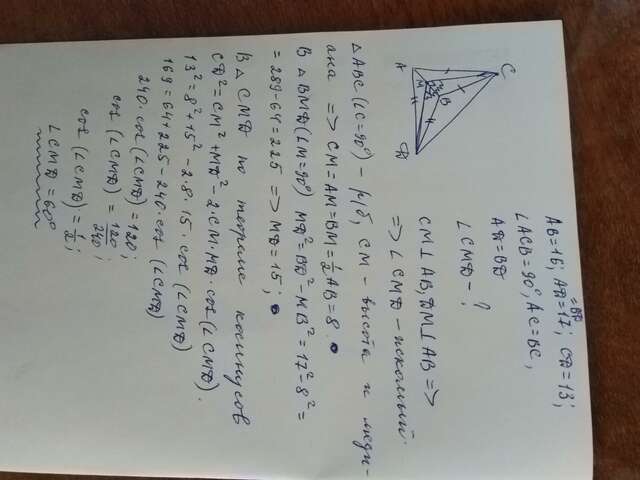 AB=16; AD=17; CD=13;
=BD
∠ACB=90°, AC=BC,
AD=BD
∠CMD - ?
C
A
M
B
D
CM⊥AB, DM⊥AB =>
=> ∠CMD - искомый.
△ABC (∠C=90°) - р/б, CM - высота и меди-
ана => CM=AM=BM=½AB=8.
В △BMD (∠M=90°) MD²=BD²-MB²=17²-8²=
=289-64=225 => MD=15;
В △CMD по теореме косинусов
CD²=CM²+MD²-2·CM·MD·cos(∠CMD).
13²=8²+15²-2·8·15·cos(∠CMD)
169=64+225-240·cos(∠CMD)
240·cos(∠CMD)=120;
cos(∠CMD)=120/240;
cos(∠CMD)=½;
∠CMD=60°